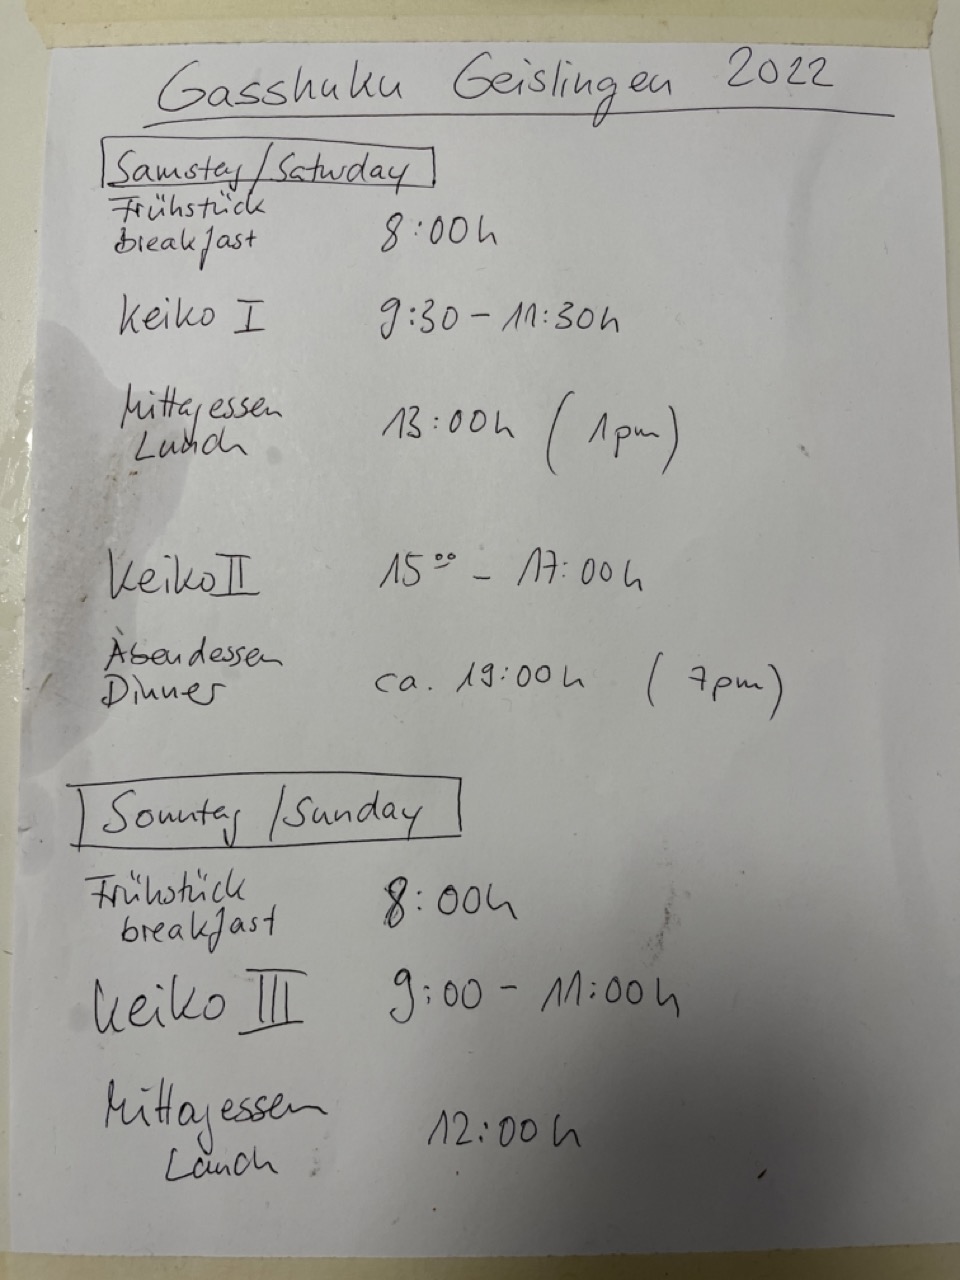 Gasshuku Geislingen 2022
Samstag/Saturday
Frühstück
breakfast 8:00h
Keiko I 9:30 - 11:30h
Mittagessen
Lunch 13:00h (1pm)
Keiko II 15⁰⁰ - 17:00h
Abendessen
Dinner ca. 19:00h (7pm)
Sonntag/Sunday
Frühstück
breakfast 8:00h
Keiko III 9:00 - 11:00h
Mittagessen
Lunch 12:00h